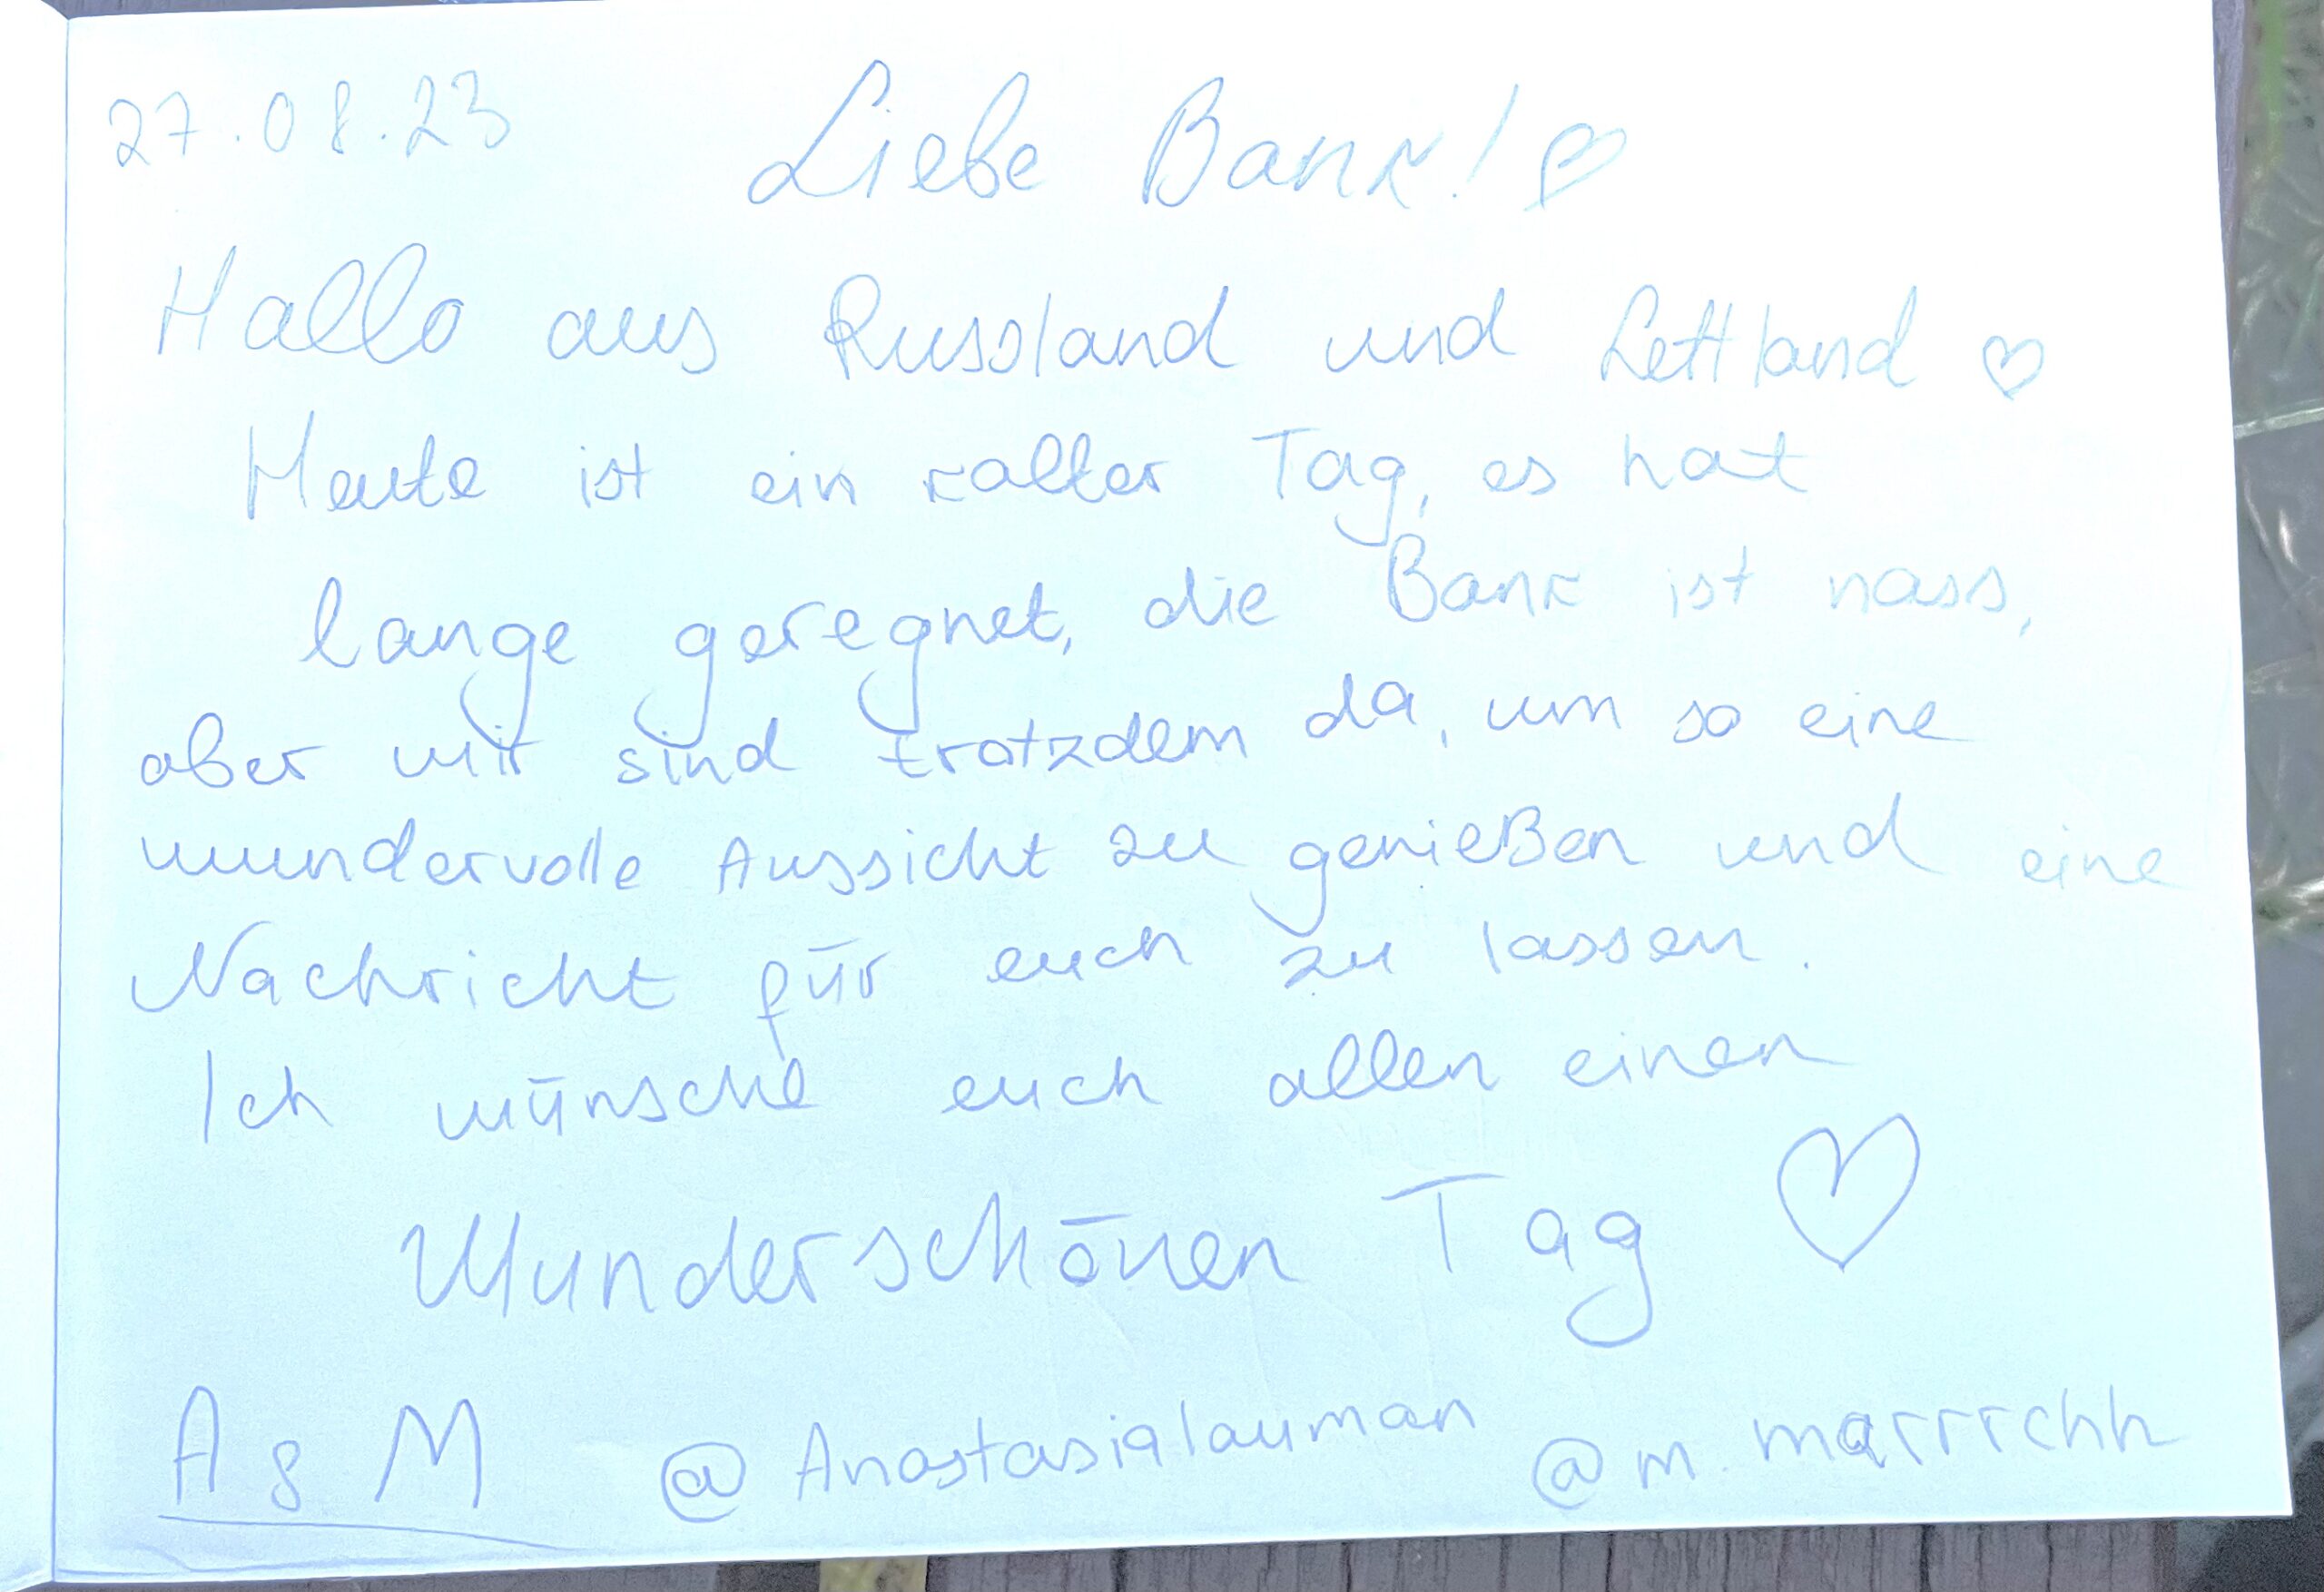 27.08.23 Liebe Bank! ♡
Hallo aus Russland und Lettland ♡
Heute ist ein kalter Tag, es hat
lange geregnet, die Bank ist nass,
aber wir sind trotzdem da, um so eine
wundervolle Aussicht zu genießen und eine
Nachricht für euch zu lassen.
Ich wünsche euch allen einen
Wunderschönen Tag ♡
A & M @Anastasialauman @m.marrrchh